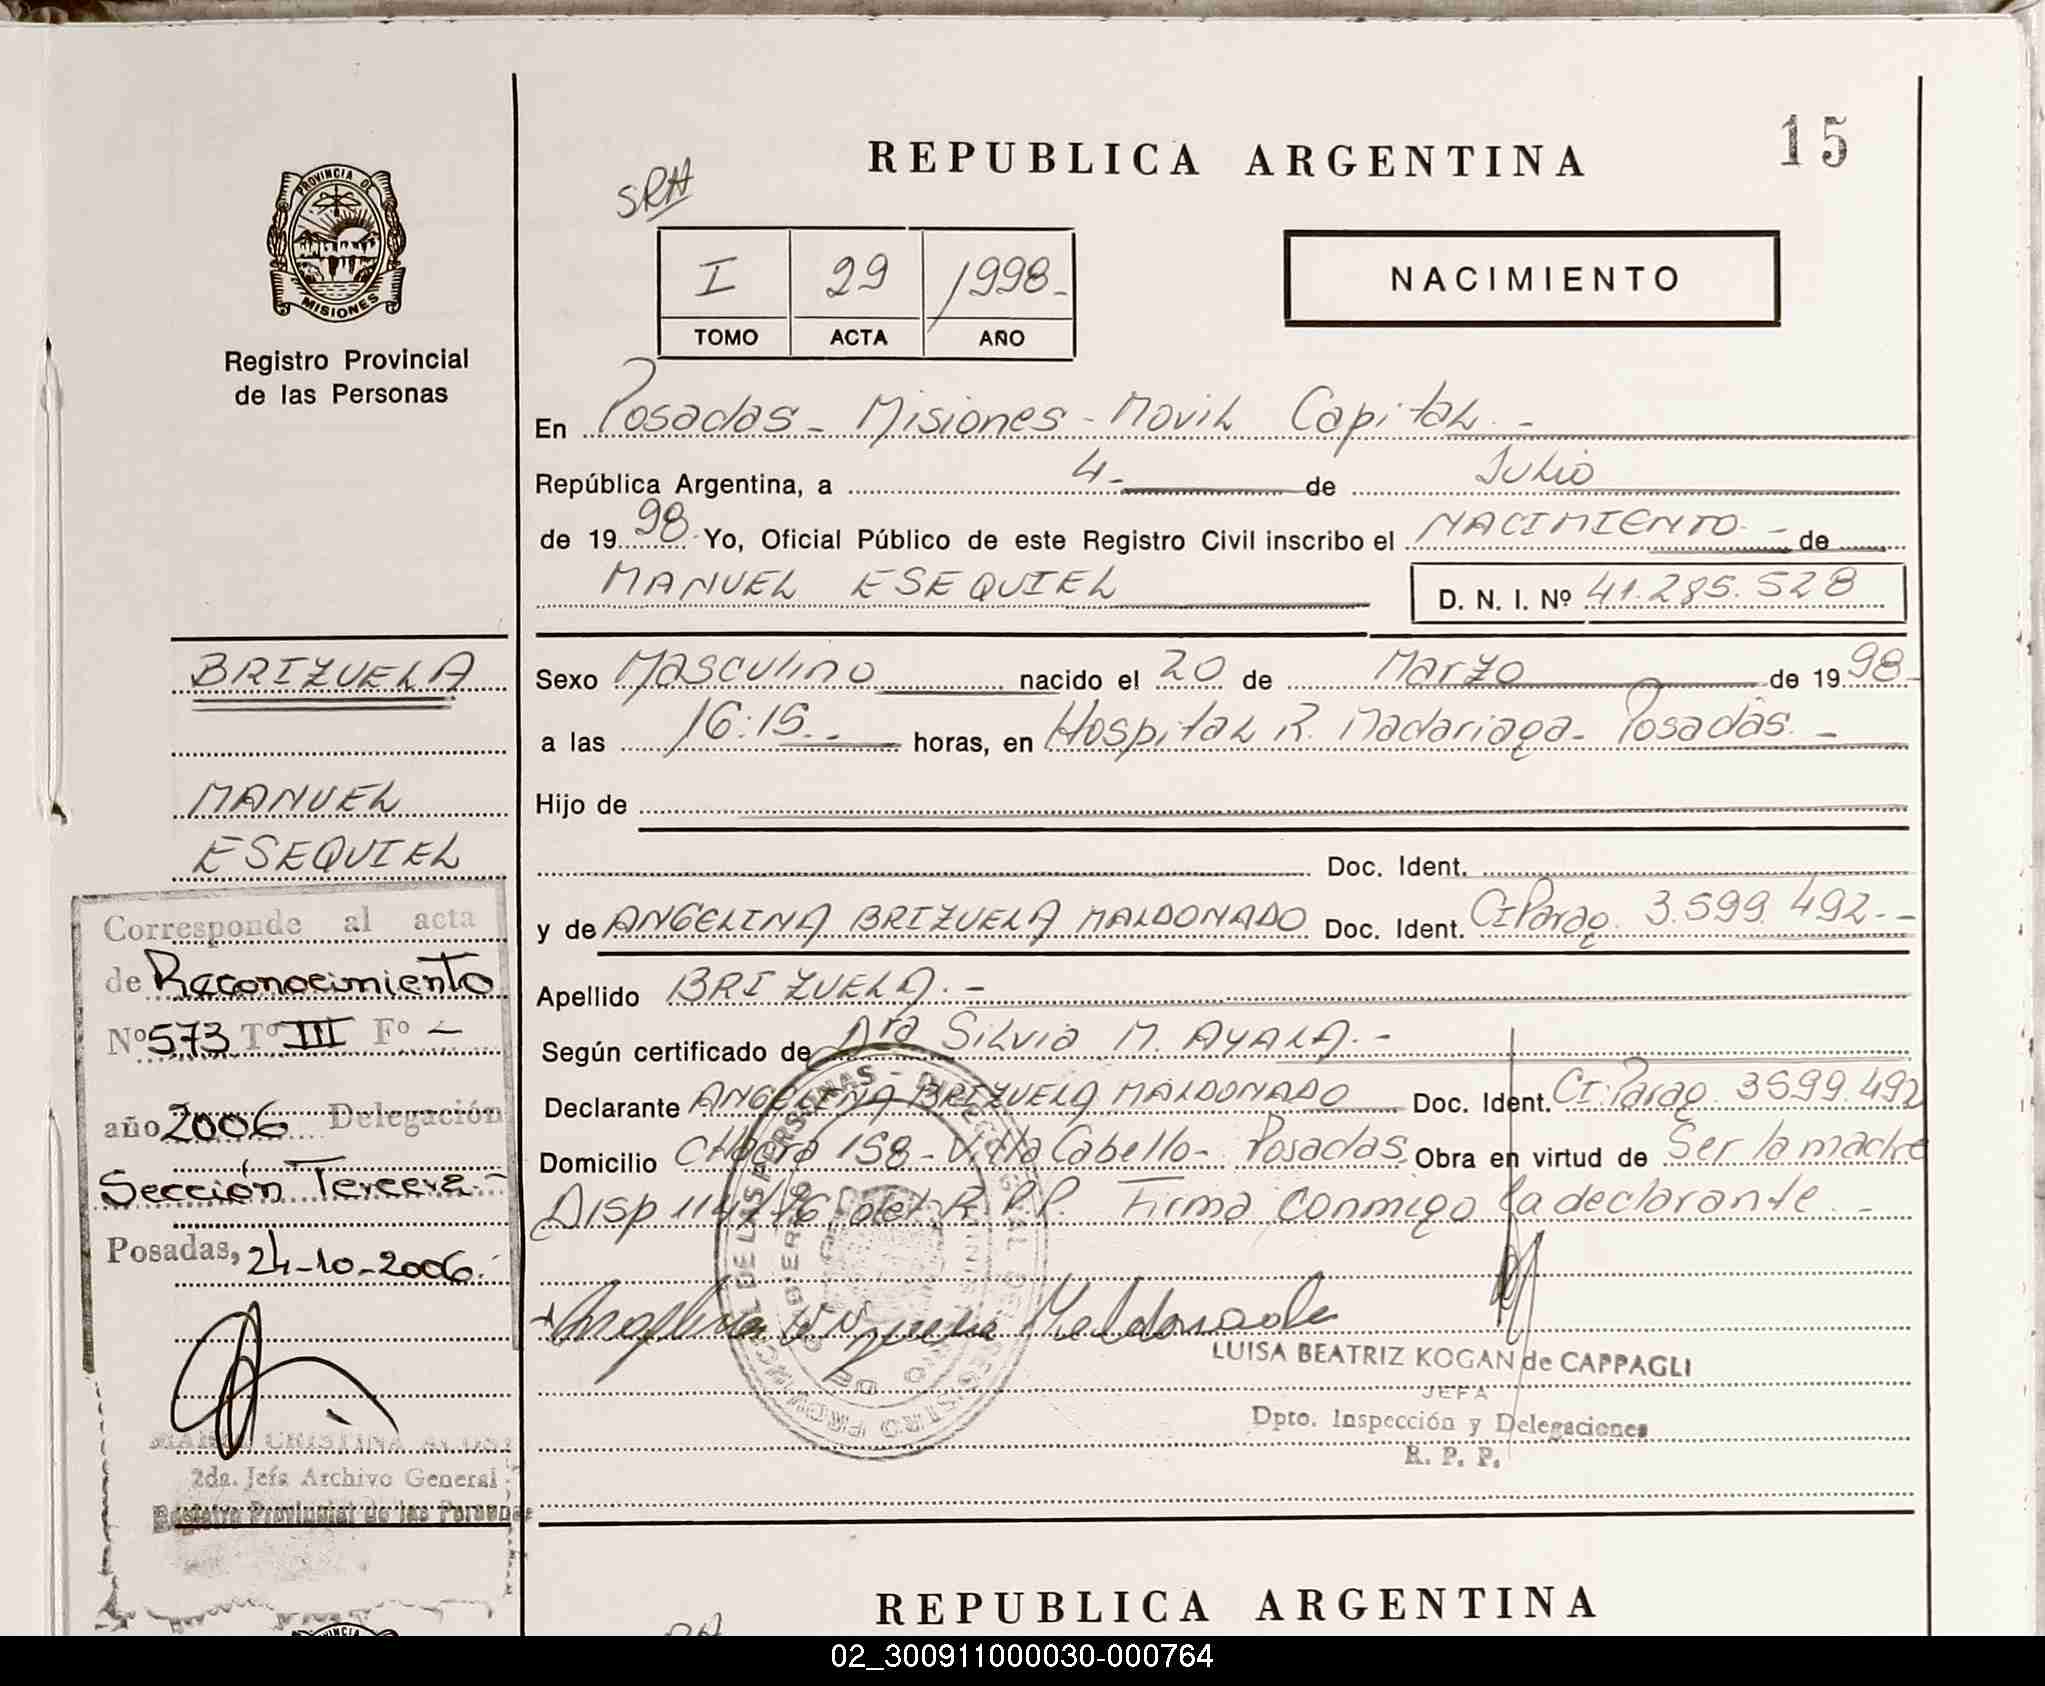 15
REPUBLICA ARGENTINA
SRA
PROVINCIA DE
MISIONES
Registro Provincial
de las Personas
I 29 1998-
TOMO ACTA AÑO
NACIMIENTO
En Posadas - Misiones - Movil Capital. -
República Argentina, a 4- de Julio
de 19 98 Yo, Oficial Público de este Registro Civil inscribo el NACIMIENTO - de
MANUEL ESEQUIEL D. N. I. Nº 41.285.528
BRIZUELA
MANUEL
ESEQUIEL
Sexo Masculino nacido el 20 de Marzo de 19 98-
a las 16:15.- horas, en Hospital R. Madariaga - Posadas. -
Hijo de
Doc. Ident.
y de ANGELINA BRIZUELA MALDONADO Doc. Ident. CI Parag. 3.599.492.-
Apellido BRIZUELA. -
Según certificado de Dra Silvia M. AYALA. -
Declarante ANGELINA BRIZUELA MALDONADO Doc. Ident. CI: Parag. 3599.492
Domicilio CHacra 158 - Villa Cabello - Posadas Obra en virtud de Ser la madre
Disp 114/96 del R.P.P. Firma conmigo la declarante. -
Angelina Brizuela Maldonado
LUISA BEATRIZ KOGAN de CAPPAGLI
JEFA
Dpto. Inspección y Delegaciones
R. P. P.
Corresponde al acta
de Reconocimiento
Nº 573 Tº III Fº -
año 2006 Delegación
Sección Tercera -
Posadas, 24-10-2006.
CRISTINA
2da. Jefa Archivo General
Registro Provincial de las Personas
REPUBLICA ARGENTINA
02_300911000030-000764